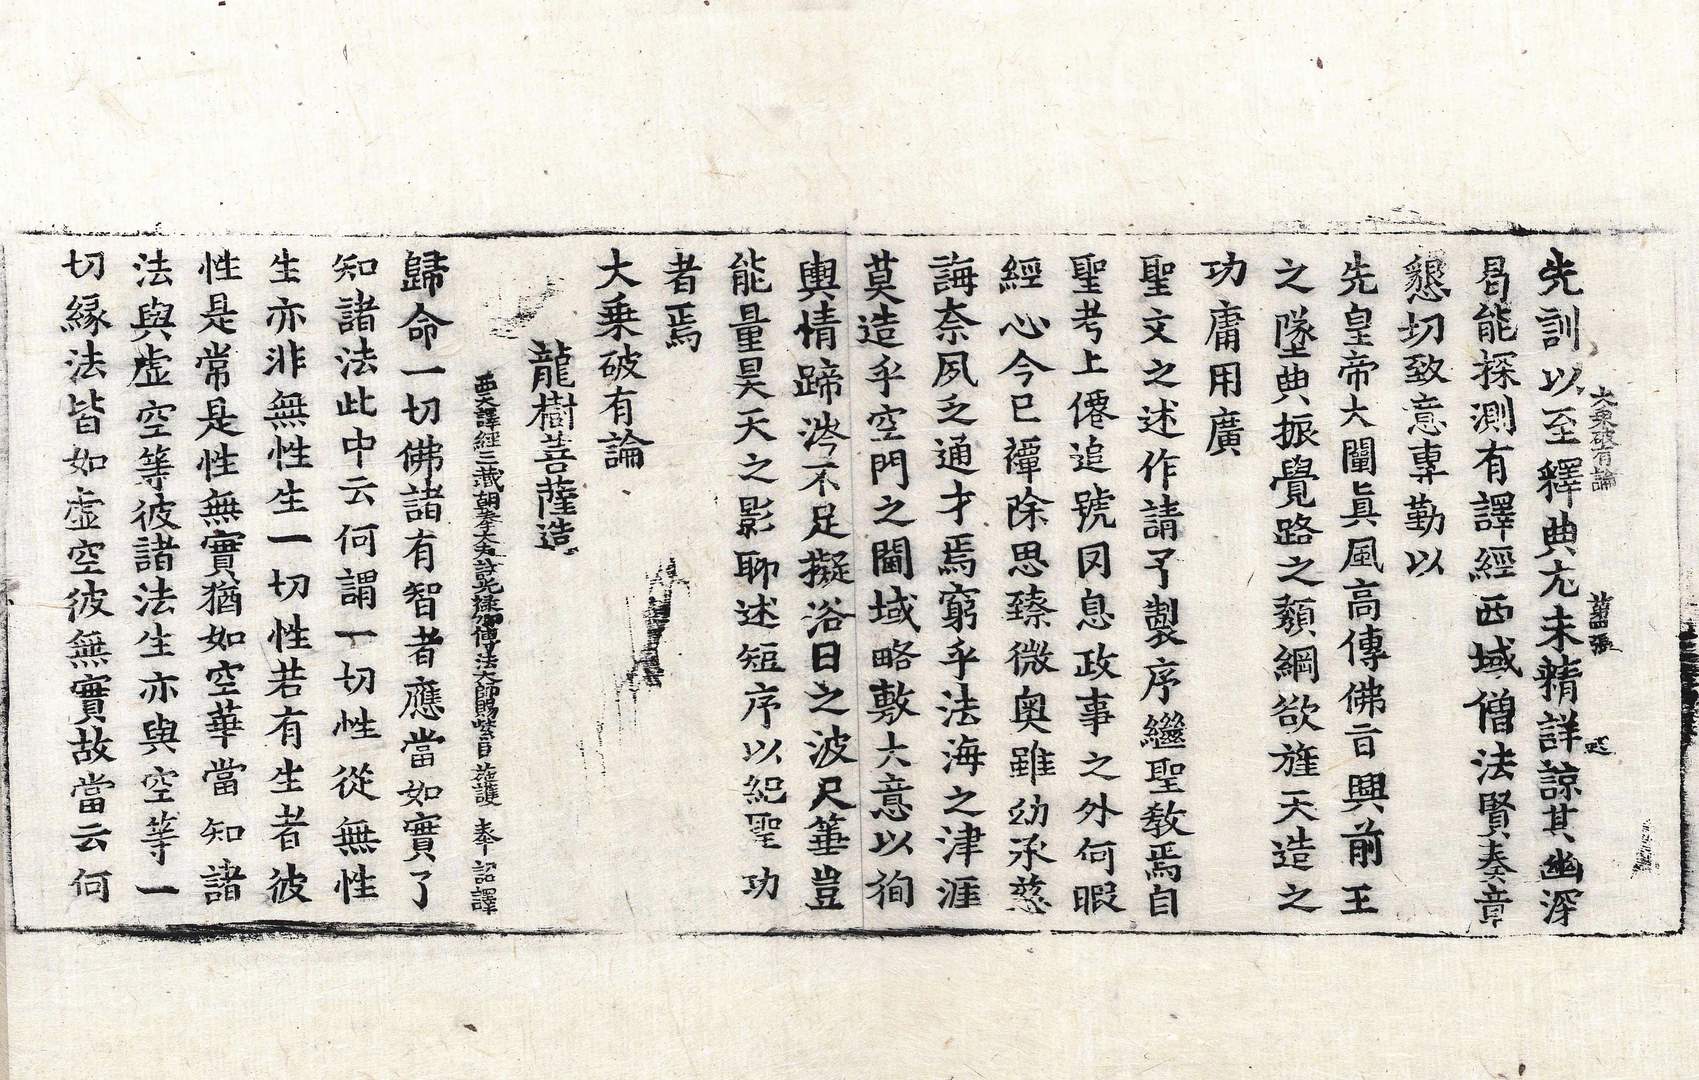 大乗破有論 第四張 㢤
先訓以至釋典尤未精詳諒其幽深
曷能探測有譯經西域僧法賢奏章
懇切致意專勤以
先皇帝大闡眞風高傳佛旨興前王
之墜典振覺路之頹綱欲旌天造之
功庸用廣
聖文之述作請予製序繼聖教焉自
聖考上僊追號罔息政事之外何暇
經心今已禫除思臻微奧雖幼承慈
誨奈夙乏通才焉窮乎法海之津涯
莫造乎空門之閫域略敷大意以徇
輿情蹄涔不足擬浴日之波尺箠豈
能量昊天之影聊述短序以紀聖功
者焉
大乗破有論
龍樹菩薩造
西天譯經三藏朝奉大夫試光祿卿傳法大師賜紫臣施護 奉 詔譯
歸命一切佛諸有智者應當如實了
知諸法此中云何謂一切性從無性
生亦非無性生一切性若有生者彼
性是常是性無實猶如空華當知諸
法與虛空等彼諸法生亦與空等一
切緣法皆如虛空彼無實故當云何